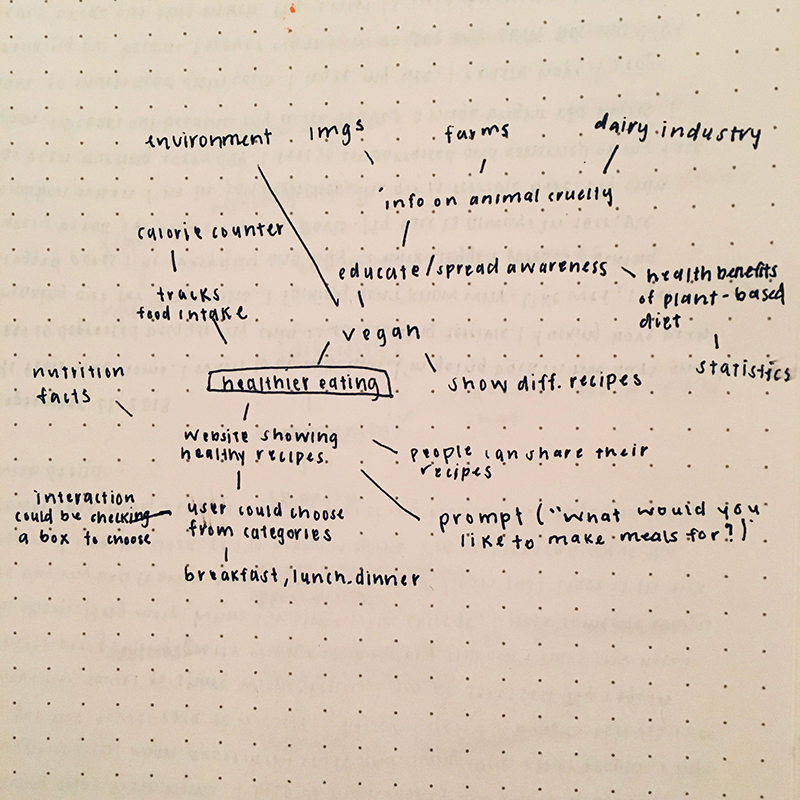 environment
imgs
farms
dairy industry
info on animal cruelly
calorie counter
educate/spread awareness
health benefits
of plant-based
diet
tracks
food intake
vegan
statistics
nutrition
facts
healthier eating
show diff. recipes
website showing
healthy recipes.
people can share their
recipes
interaction
could be checking
a box to choose
user could choose
from categories
prompt ("what would you
like to make meals for?)
breakfast, lunch, dinner